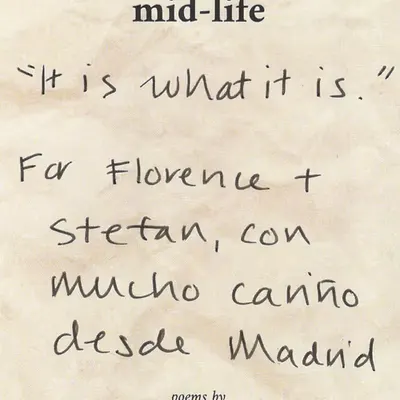 mid-life
"It is what it is."
For Florence +
Stefan, con
mucho cariño
desde Madrid
poems by